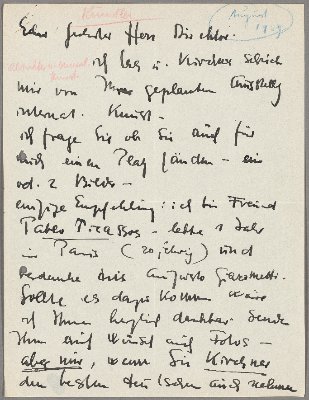 Künstler
August
Sehr geehrter Herr Direktor.
ich las u. Kirchner
mir von Ihrer geplanten Ausstellg
internat. Kunst -
ich frage Sie ob Sie auch für
mich einen Platz fänden - ein
od. 2 Bilder -
einzige Empfehlung: ich bin Freund
Pablo Picassos - lebte 1 Jahr
in Paris (20 jährig) und
verdanke dies Augusto Giacometti.
Sollte es dazu kommen wäre
ich Ihnen herzlich dankbar. Sende
Ihnen auf Wunsch auch Fotos -
aber nur, wenn Sie Kirchner
den besten deutschen auch nehmen